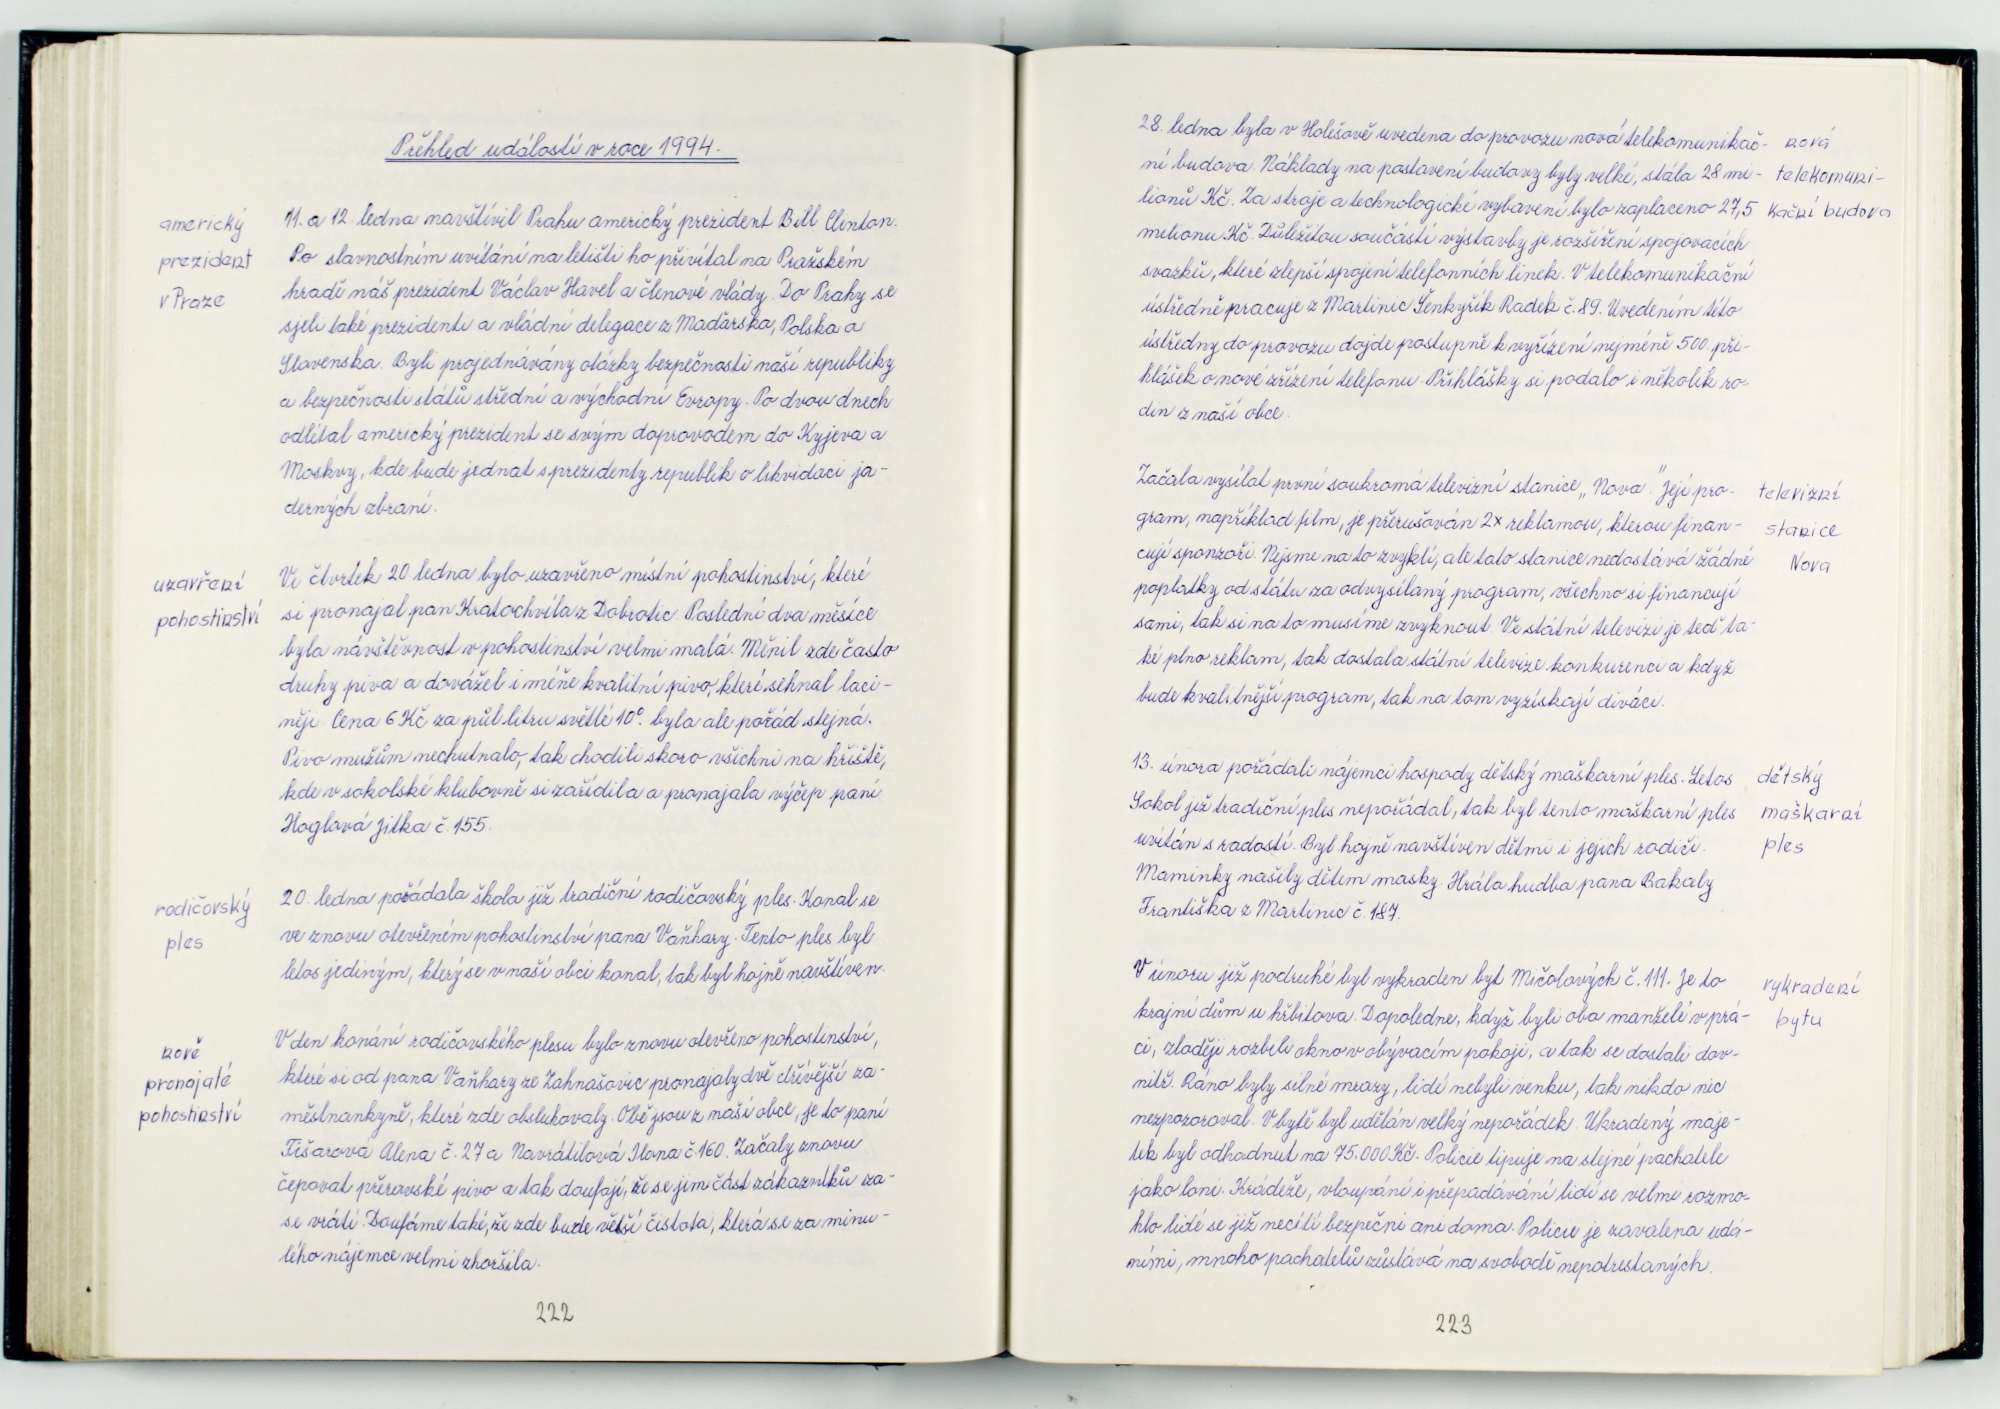 Přehled událostí v roce 1994.
americký
prezident
v Praze
11. a 12. ledna navštívil Prahu americký prezident Bill Clinton.
Po slavnostním uvítání na letišti ho přivítal na Pražském
hradě náš prezident Václav Havel a členové vlády. Do Prahy se
sjeli také prezidenti a vládní delegace z Maďarska, Polska a
Slovenska. Byli projednávány otázky bezpečnosti naší republiky
a bezpečnosti států střední a východní Evropy. Po dvou dnech
odlétal americký prezident se svým doprovodem do Kyjeva a
Moskvy, kde bude jednat s prezidenty republik o likvidaci ja-
derných zbraní.
uzavření
pohostinství
Ve čtvrtek 20. ledna bylo uzavřeno místní pohostinství, které
si pronajal pan Kratochvíla z Dobrotic. Poslední dva měsíce
byla návštěvnost v pohostinství velmi malá. Měnil zde často
druhy piva a dovážel i méně kvalitní pivo, které sehnal laci-
něji. Cena 6 Kč za půl litru světlé 10°. byla ale pořád stejná.
Pivo mužům nechutnalo, tak chodili skoro všichni na hřiště,
kde v sokolské klubovně si zařídila a pronajala výčep paní
Hoglová Jitka č. 155.
rodičovský
ples
20. ledna pořádala škola již tradiční rodičovský ples. Konal se
ve znovu otevřeném pohostinství pana Vaňhary. Tento ples byl
letos jediným, který se v naší obci konal, tak byl hojně navštíven.
nově
pronajaté
pohostinství
V den konání rodičovského plesu bylo znovu otevřeno pohostinství,
které si od pana Vaňhary ze Zahnašovic pronajaly dvě dřívější za-
městnankyně, které zde obsluhovaly. Obě jsou z naší obce, je to paní
Fišarová Alena č. 27 a Navrátilová Ilona č. 160. Začaly znovu
čepovat přerovské pivo a tak doufají, že se jim část zákazníků za-
se vrátí. Doufáme také, že zde bude větší čistota, která se za minu-
lého nájemce velmi zhoršila.
222
28. ledna byla v Holešově uvedena do provozu nová telekomunikač-
ní budova. Náklady na postavení budovy byly velké, stála 28 mi-
lionů Kč. Za stroje a technologické vybavení bylo zaplaceno 27,5
milionu Kč. Důležitou součástí výstavby je rozšíření spojovacích
svazků, které zlepší spojení telefonních linek. V telekomunikační
ústředně pracuje z Martinic Šenkyřík Radek č. 89. Uvedením této
ústředny do provozu dojde postupně k vyřízení nejméně 500 při-
hlášek o nové zřízení telefonu. Přihlášky si podalo i několik ro-
din z naší obce.
nová
telekomuni-
kační budova
Začala vysílat první soukromá televizní stanice „Nova". Její pro-
gram, například film, je přerušován 2x reklamou, kterou finan-
cují sponzoři. Nejsme na to zvyklí, ale tato stanice nedostává žádné
poplatky od státu za odvysílaný program, všechno si financují
sami, tak si na to musíme zvyknout. Ve státní televizi je teď ta-
ké plno reklam, tak dostala státní televize konkurenci a když
bude kvalitnější program, tak na tom vyzískají diváci.
televizní
stanice
Nova
13. února pořádali nájemci hospody dětský maškarní ples. Letos
Sokol již tradiční ples nepořádal, tak byl tento maškarní ples
uvítán s radostí. Byl hojně navštíven dětmi i jejich rodiči.
Maminky našily dětem masky. Hrála hudba pana Bakaly
Františka z Martinic č. 187.
dětský
maškarní
ples
V únoru již podruhé byl vykraden byt Mičolových č. 111. Je to
krajní dům u hřbitova. Dopoledne, když byli oba manželé v prá-
ci, zloději rozbili okno v obývacím pokoji, a tak se dostali dov-
nitř. Ráno byly silné mrazy, lidé nebyli venku, tak nikdo nic
nezpozoroval. V bytě byl udělán velký nepořádek. Ukradený maje-
tek byl odhadnut na 75.000 Kč. Policie tipuje na stejné pachatele
jako loni. Krádeže, vloupání i přepadávání lidí se velmi rozmo-
hlo lidé se již necítí bezpeční ani doma. Policie je zavalena udá-
ními, mnoho pachatelů zůstává na svobodě nepotrestaných.
vykradení
bytu
223